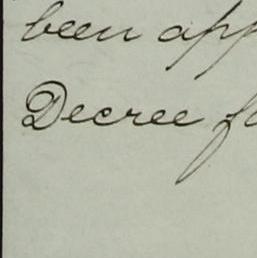 been app
Decree fo